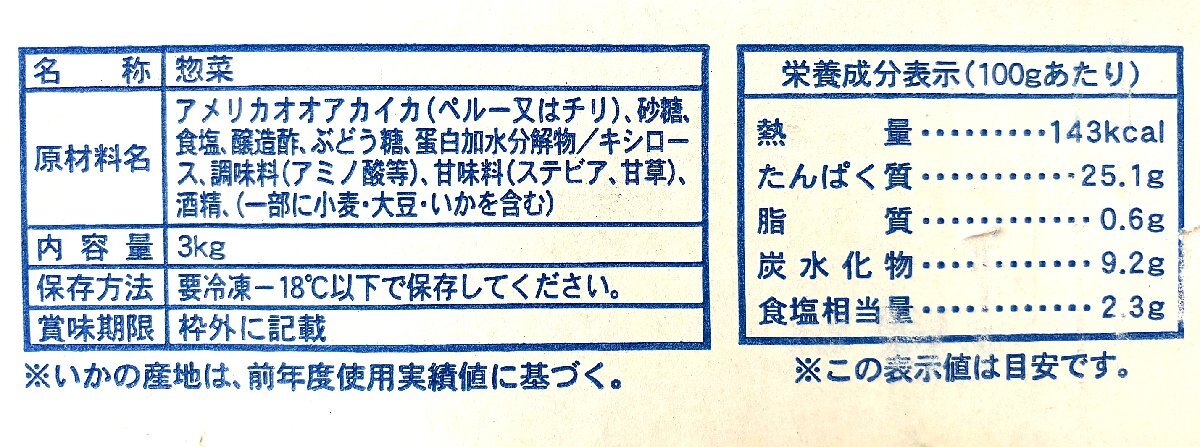 名称 惣菜
原材料名 アメリカオオアカイカ(ペルー又はチリ)、砂糖、
食塩、醸造酢、ぶどう糖、蛋白加水分解物/キシロー
ス、調味料(アミノ酸等)、甘味料(ステビア、甘草)、
酒精、(一部に小麦・大豆・いかを含む)
内容量 3kg
保存方法 要冷凍-18℃以下で保存してください。
賞味期限 枠外に記載
※いかの産地は、前年度使用実績値に基づく。
栄養成分表示(100gあたり)
熱量・・・・・・・・・・143kcal
たんぱく質・・・・・・・・・・・25.1g
脂質・・・・・・・・・・・・0.6g
炭水化物・・・・・・・・・・・・9.2g
食塩相当量・・・・・・・・・・・・2.3g
※この表示値は目安です。